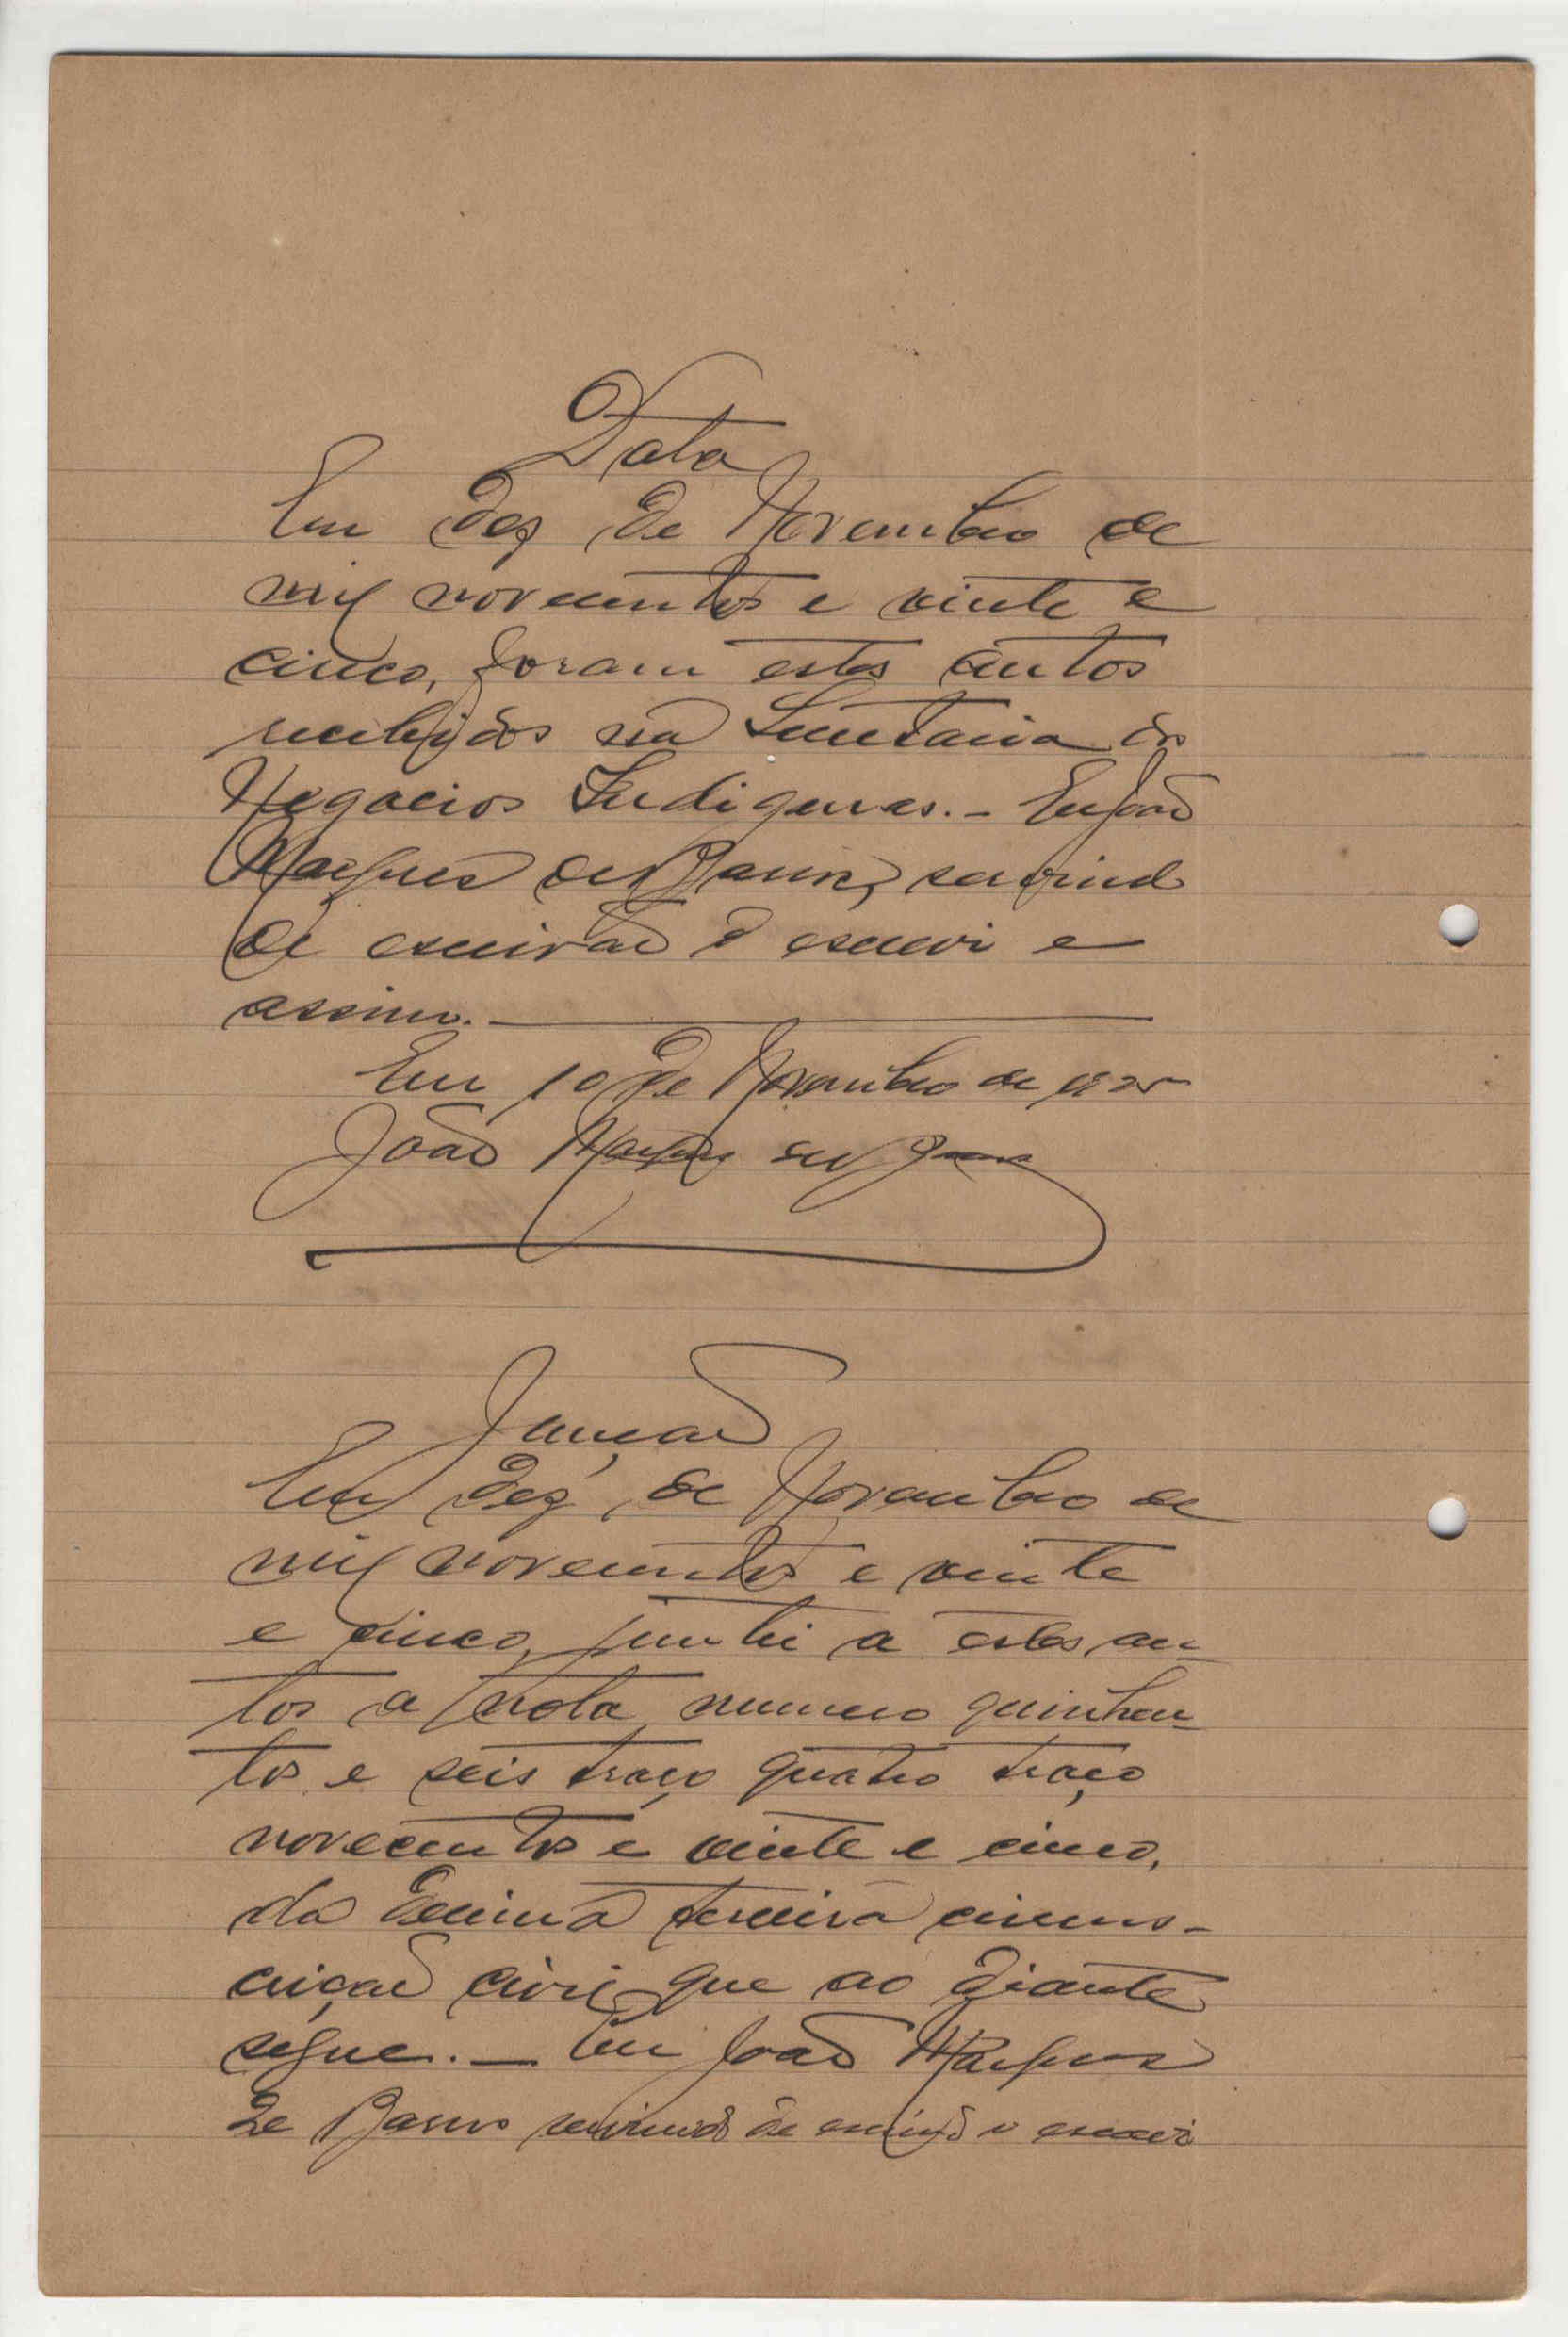 Data
Em dez de Novembro de
mil novecentos e vinte e
cinco, foram estes autos
recebidos na Secretaria dos
Negocios Indigenas. - Eu João
Marques de Barros, servindo
de escrivão o escrevi e
assino.
Em 10 de Novembro de 1925
João Marques de Barros
Junção
Em dez de Novembro de
mil novecentos e vinte
e cinco, juntei a estes au-
tos a nota numero quinhen-
tos e seis traço quatro traço
novecentos e vinte e cinco,
da Decima terceira circuns-
crição civil que ao diante
segue. - Eu João Marques
de Barros servindo de escrivão o escrevi